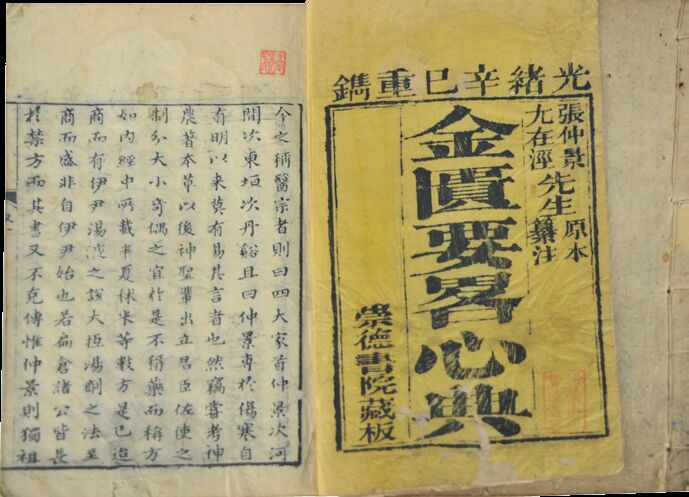 光緒辛巳重鐫
張仲景先生原本
尤在涇先生纂注
金匱要畧心典
崇德書院藏板
今之稱醫宗者則曰四大家首仲景次河
間次東垣次丹谿且曰仲景專於傷寒自
有明以來莫有易其言者也然竊嘗考神
農著本草以後神聖輩出立君臣佐使之
制分大小奇偶之宜於是不稱藥而稱方
如內經中所載半夏秫米等數方是已迨
商而有伊尹湯液之說大抵湯劑之法至
商而盛非自伊尹始也若扁倉諸公皆長
於禁方而其書又不克傳惟仲景則獨祖